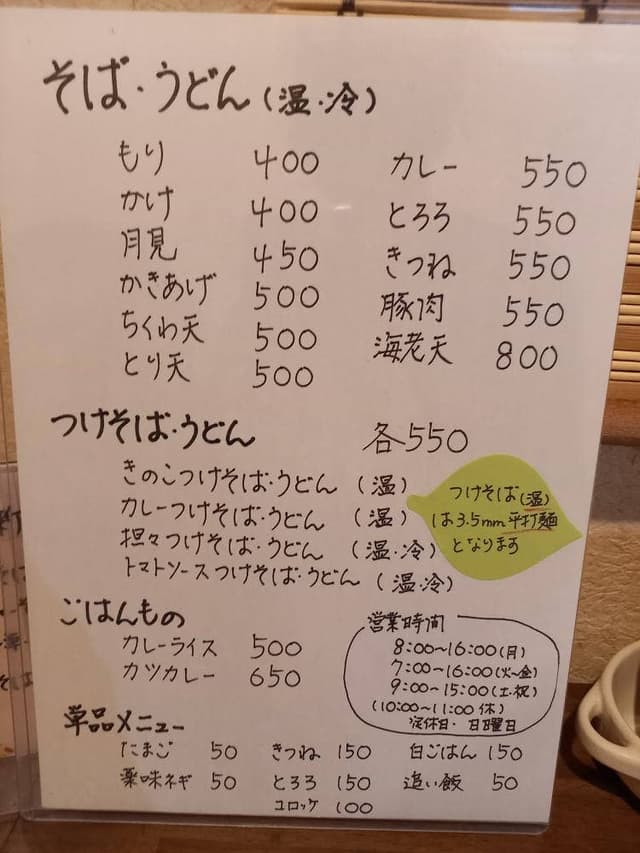 そば・うどん(温・冷)
もり 400 カレー 550
かけ 400 とろろ 550
月見 450 きつね 550
かきあげ 500 豚肉 550
ちくわ天 500 海老天 800
とり天 500
つけそば・うどん 各550
きのこつけそば・うどん (温)
カレーつけそば・うどん (温)
担々つけそば・うどん (温・冷)
トマトソースつけそば・うどん (温・冷)
つけそば(温)
は3.5mm平打麺
となります
ごはんもの
カレーライス 500
カツカレー 650
営業時間
8:00~16:00(月)
7:00~16:00(火~金)
9:00~15:00(土・祝)
(10:00~11:00 休)
定休日・日曜日
単品メニュー
たまご 50 きつね 150 白ごはん 150
薬味ネギ 50 とろろ 150 追い飯 50
コロッケ 100